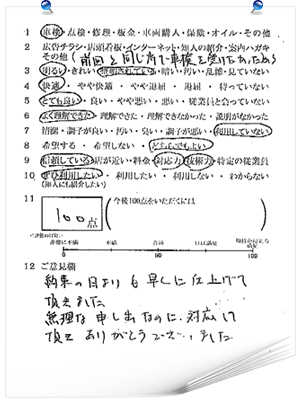 1 車検・点検・修理・板金・車両購入・保険・オイル・その他
2 広告チラシ・店頭看板・インターネット・知人の紹介・案内ハガキ
その他(前回と同じ所で車検を受けたかったから)
3 明るい・きれい・整理されている・暗い・汚い・乱雑・見ていない
4 快適・やや快適・やや退屈・退屈・待っていない
5 とても良い・良い・やや悪い・悪い・従業員と会っていない
6 よく理解できた・理解できた・理解できなかった・説明がなかった
7 清潔・調子が良い・汚い・臭い・調子が悪い・利用していない
8 希望する・希望しない・どちらでもよい
9 信頼している・店が近い・料金・対応力・技術力・特定の従業員
10 ぜひ利用したい・利用したい・利用しない・わからない
(知人にも紹介したい)
11 100点 (今後100点をいただくには)
非常に不満 不満 普通 ほぼ満足
0 50 100
12 ご意見欄
約束の日よりも早くに仕上げて
頂きました
無理な申し出なのに、対応して
頂き ありがとうございました